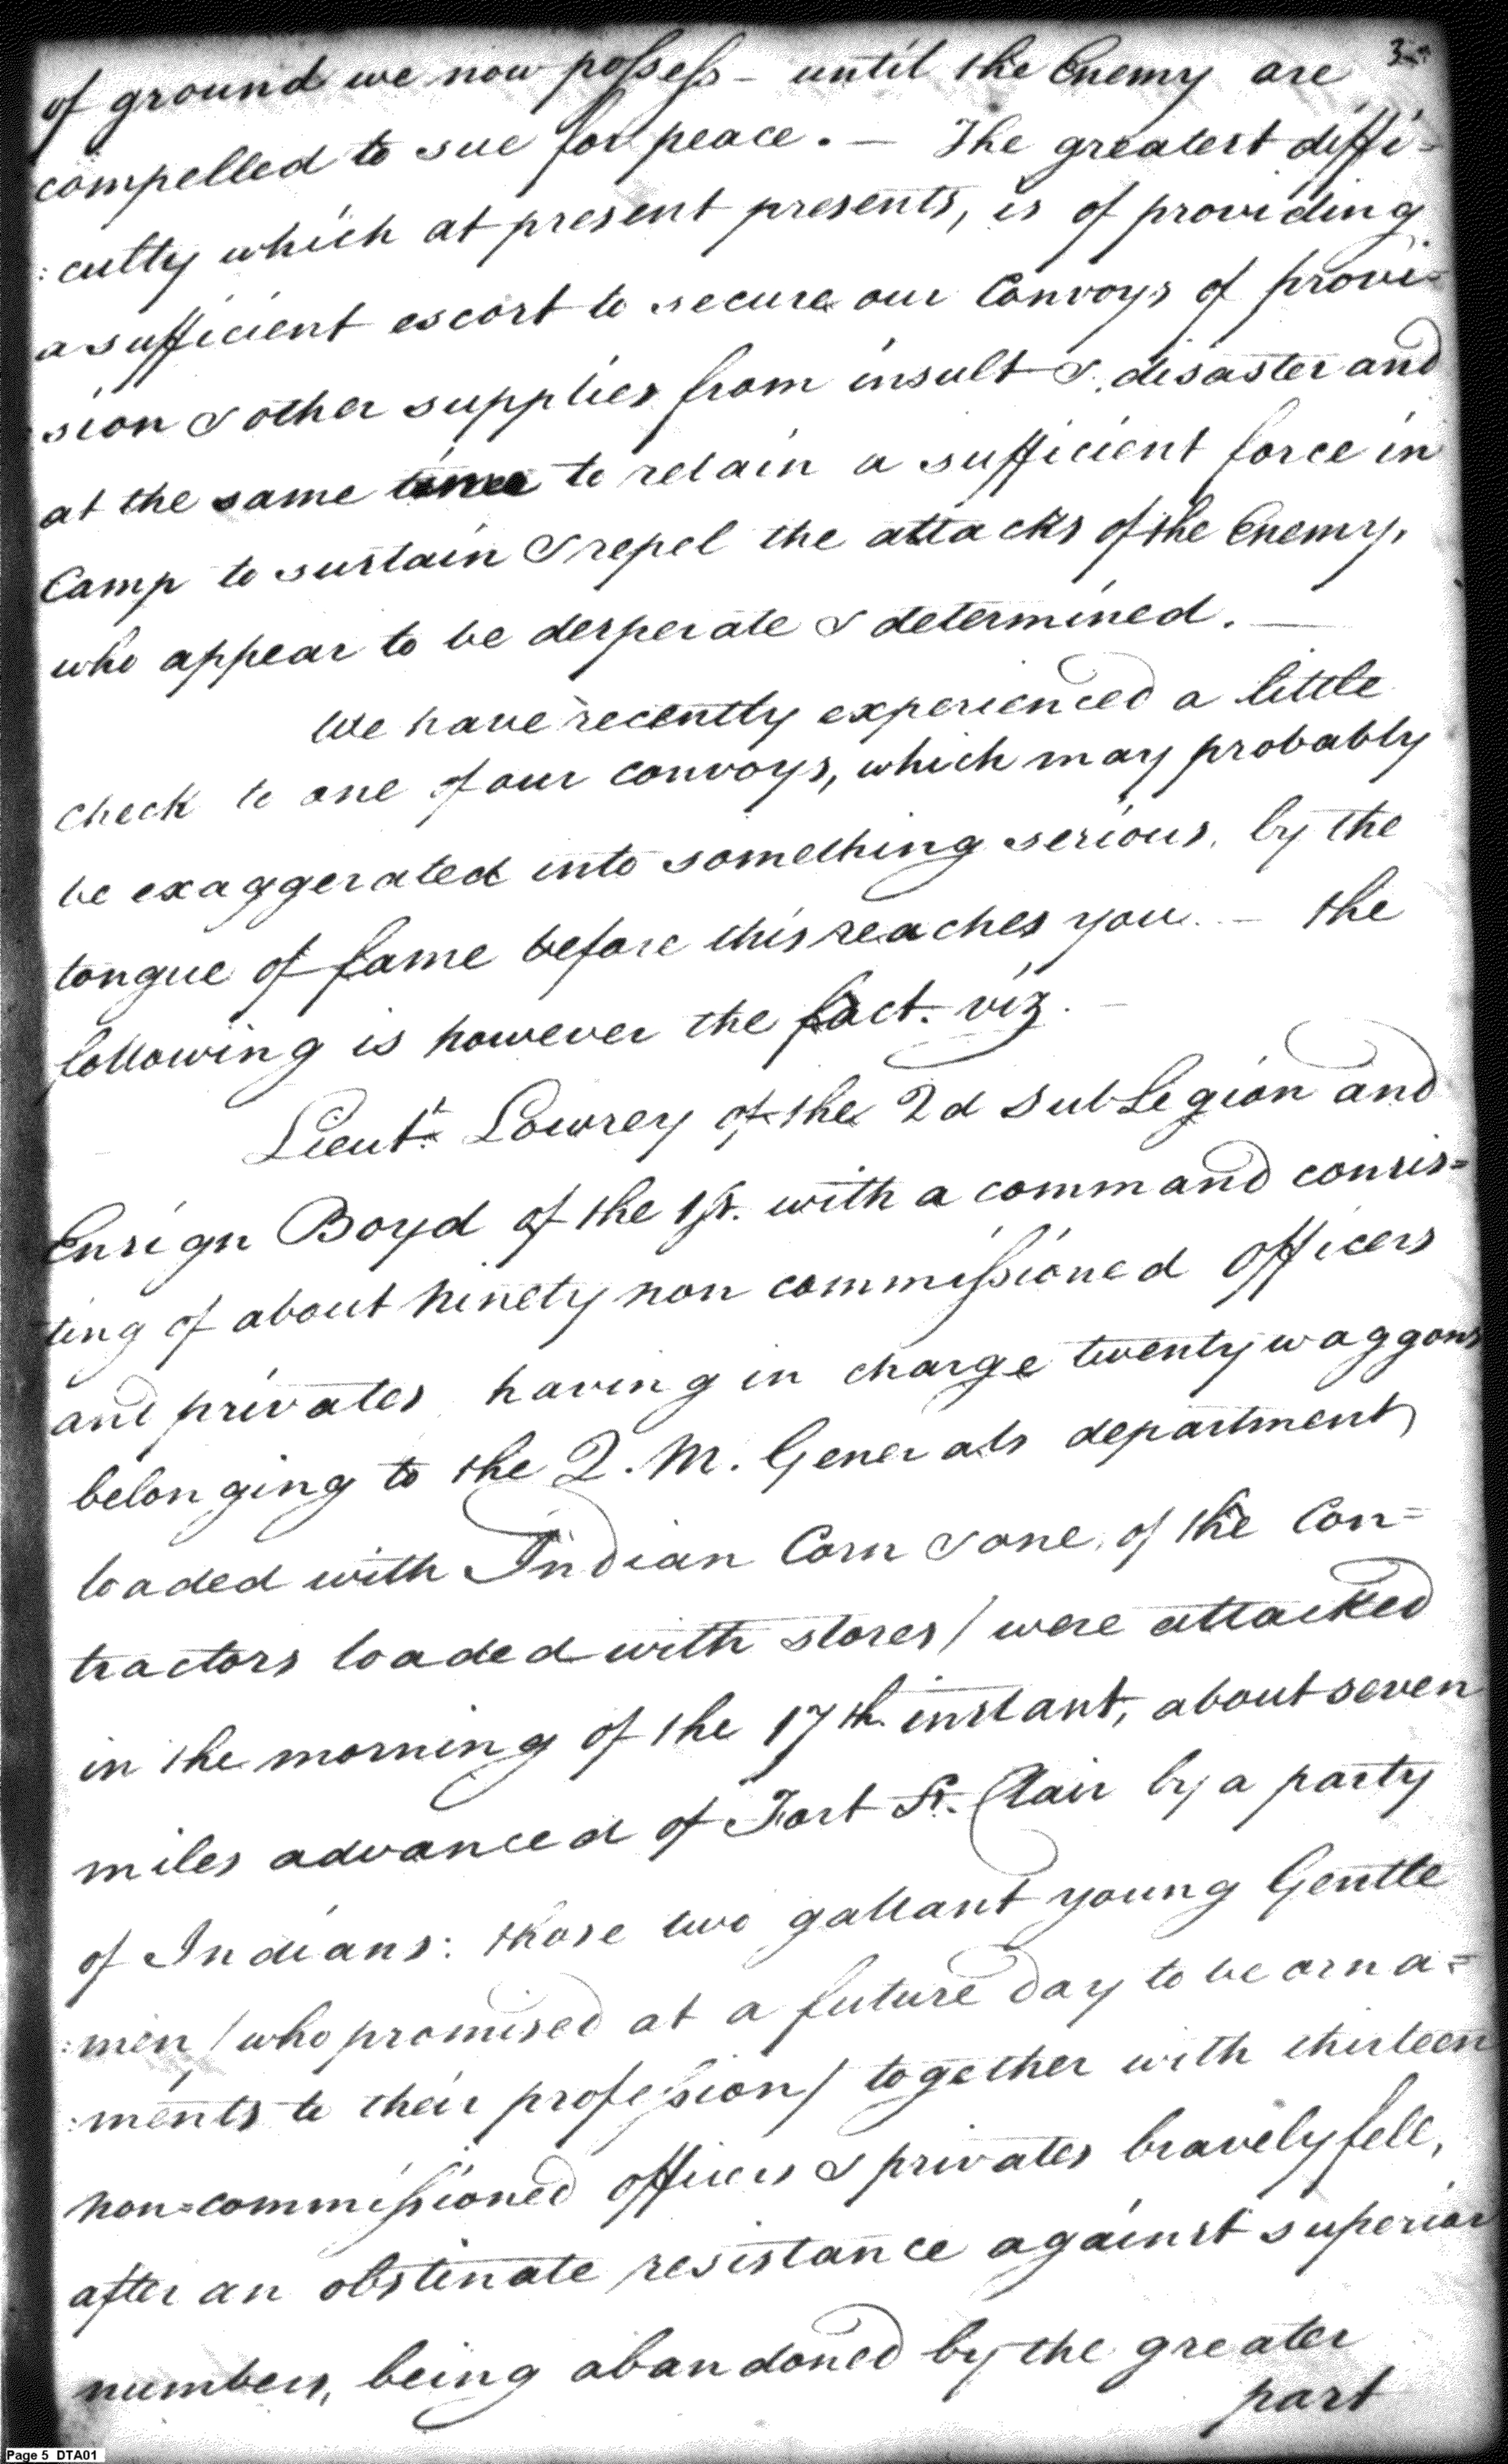 3
of ground we now possess - until the Enemy are
compelled to sue for peace. — The greatest diffi=
:culty which at present presents, is of providing
a sufficient escort to secure our Convoys of provi=
sion & other supplies from insult & disaster and
at the same time to retain a sufficient force in
Camp to sustain & repel the attacks of the Enemy,
who appear to be desperate & determined. —
We have recently experienced a little
check to one of our convoys, which may probably
be exaggerated into something serious, by the
tongue of fame before this reaches you. — the
following is however the fact. viz. —
Lieut. Lowrey of the 2d Sub Legion and
Ensign Boyd of the 1st. with a command consis=
ting of about ninety non commissioned officers
and privates having in charge twenty waggons
belonging to the Q. M. Generals department
loaded with Indian Corn & one of the Con=
tractors loaded with stores / were attacked
in the morning of the 17th instant, about seven
miles advanced of Fort St. Clair by a party
of Indians: those two gallant young Gentle
:men / who promised at a future day to be orna=
:ments to their profession / together with thirteen
non=commissioned officers & privates bravely fell,
after an obstinate resistance against superior
numbers, being abandoned by the greater
part
Page 5 DTA01